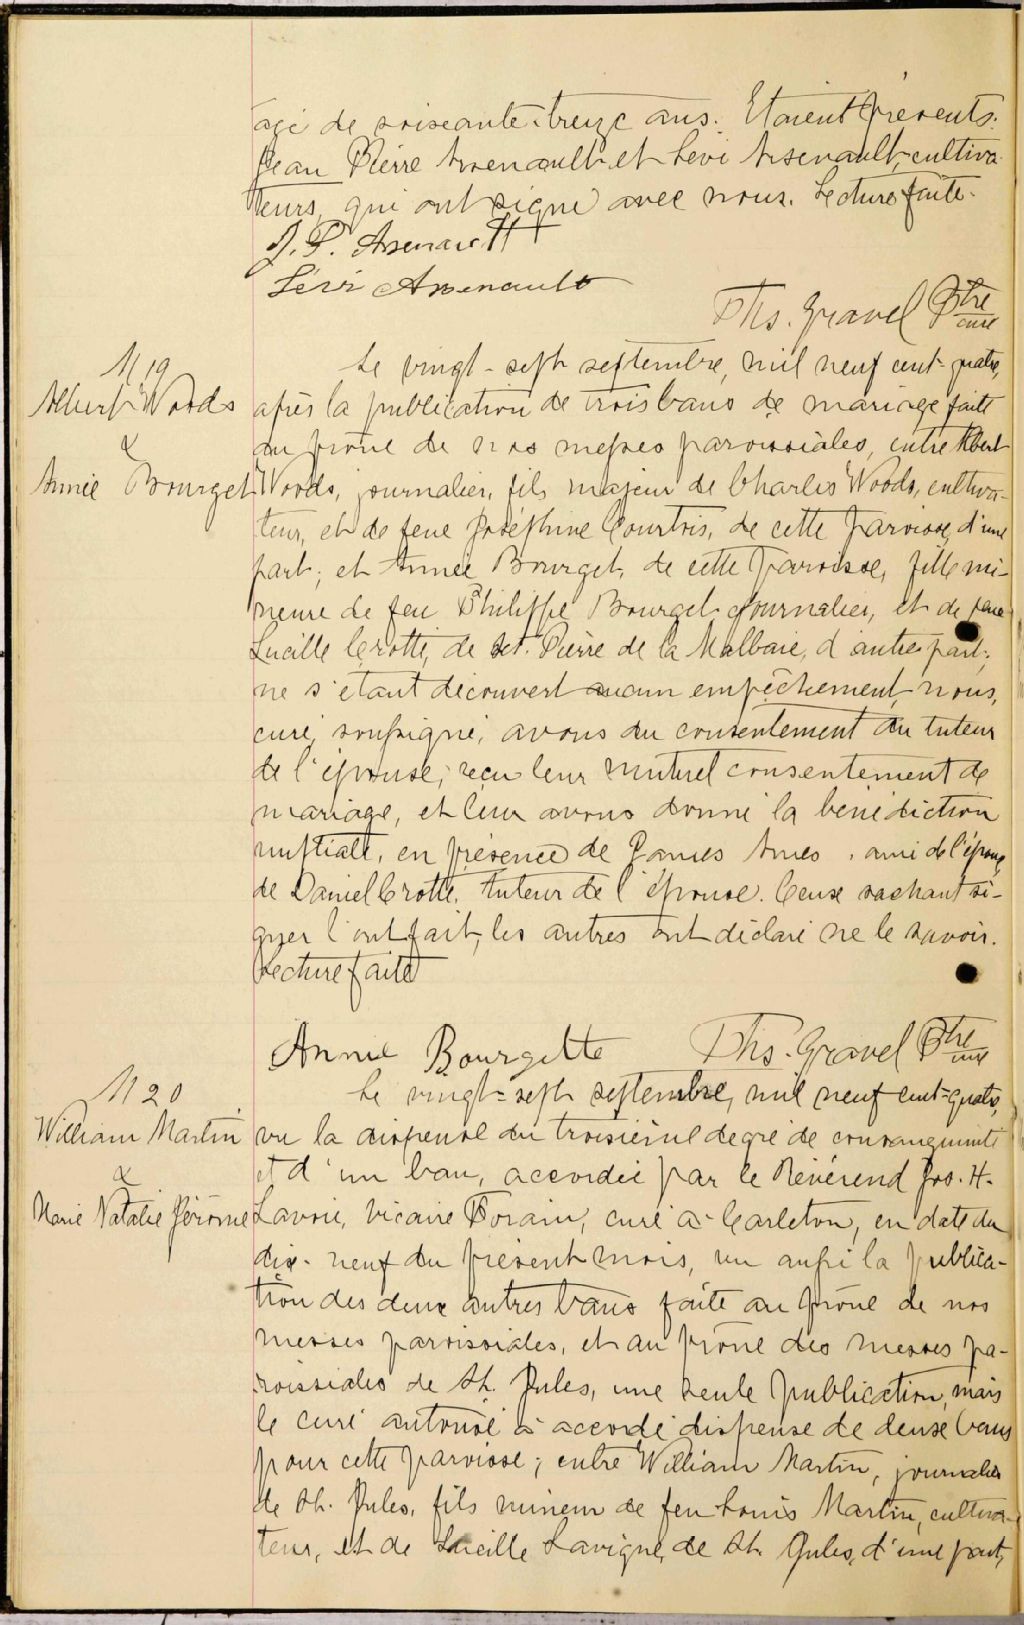 âgé de soixante-treize ans. Etaient présents:
Jean Pierre Arsenault et Lévi Arsenault, cultiva-
teurs, qui ont signé avec nous. Lecture faite.
J. P. Arsenault
Lévi Arsenault
Ths. Gravel Ptre
curé
M 19
Albert Woods
&
Annie Bourget
Le vingt-sept septembre, mil neuf cent-quatre,
après la publication de trois bans de mariage faite
au prône de nos messes paroissiales, entre Albert
Woods, journalier, fils majeur de Charles Woods, cultiva-
teur, et de feue Joséphine Courtois, de cette paroisse, d'une
part; et Annie Bourget, de cette paroisse, fille mi-
neure de feu Philippe Bourget journalier, et de feue
Lucille Crotte, de St. Pierre de la Malbaie, d'autre part;
ne s'étant découvert aucun empêchement, nous,
curé, soussigné, avons du consentement du tuteur
de l'épouse, reçu leur mutuel consentement de
mariage, et leur avons donné la bénédiction
nuptiale, en présence de James Ames, ami de l'époux,
de Daniel Crotte, tuteur de l'épouse. Ceux sachant si-
gner l'ont fait, les autres ont déclaré ne le savoir.
Lecture faite
Annie Bourgette Ths. Gravel Ptre
curé
M 20
William Martin
&
Marie Natalie Jérôme
Le vingt-sept septembre, mil neuf cent-quatre,
vu la dispense du troisième degré de consanguinité
et d'un ban, accordée par le Révérend Jos. H.
Lavoie, Vicaire Forain, curé à Carleton, en date du
dix-neuf du présent mois, vu aussi la publica-
tion des deux autres bans faite au prône de nos
messes paroissiales, et au prône des messes pa-
roissiales de St. Jules, une seule publication, mais
le curé autorisé a accordé dispense de deux bans
pour cette paroisse; entre William Martin, journalier
de St. Jules, fils mineur de feu Louis Martin, cultiva-
teur, et de Lucille Lavigne, de St. Jules, d'une part,